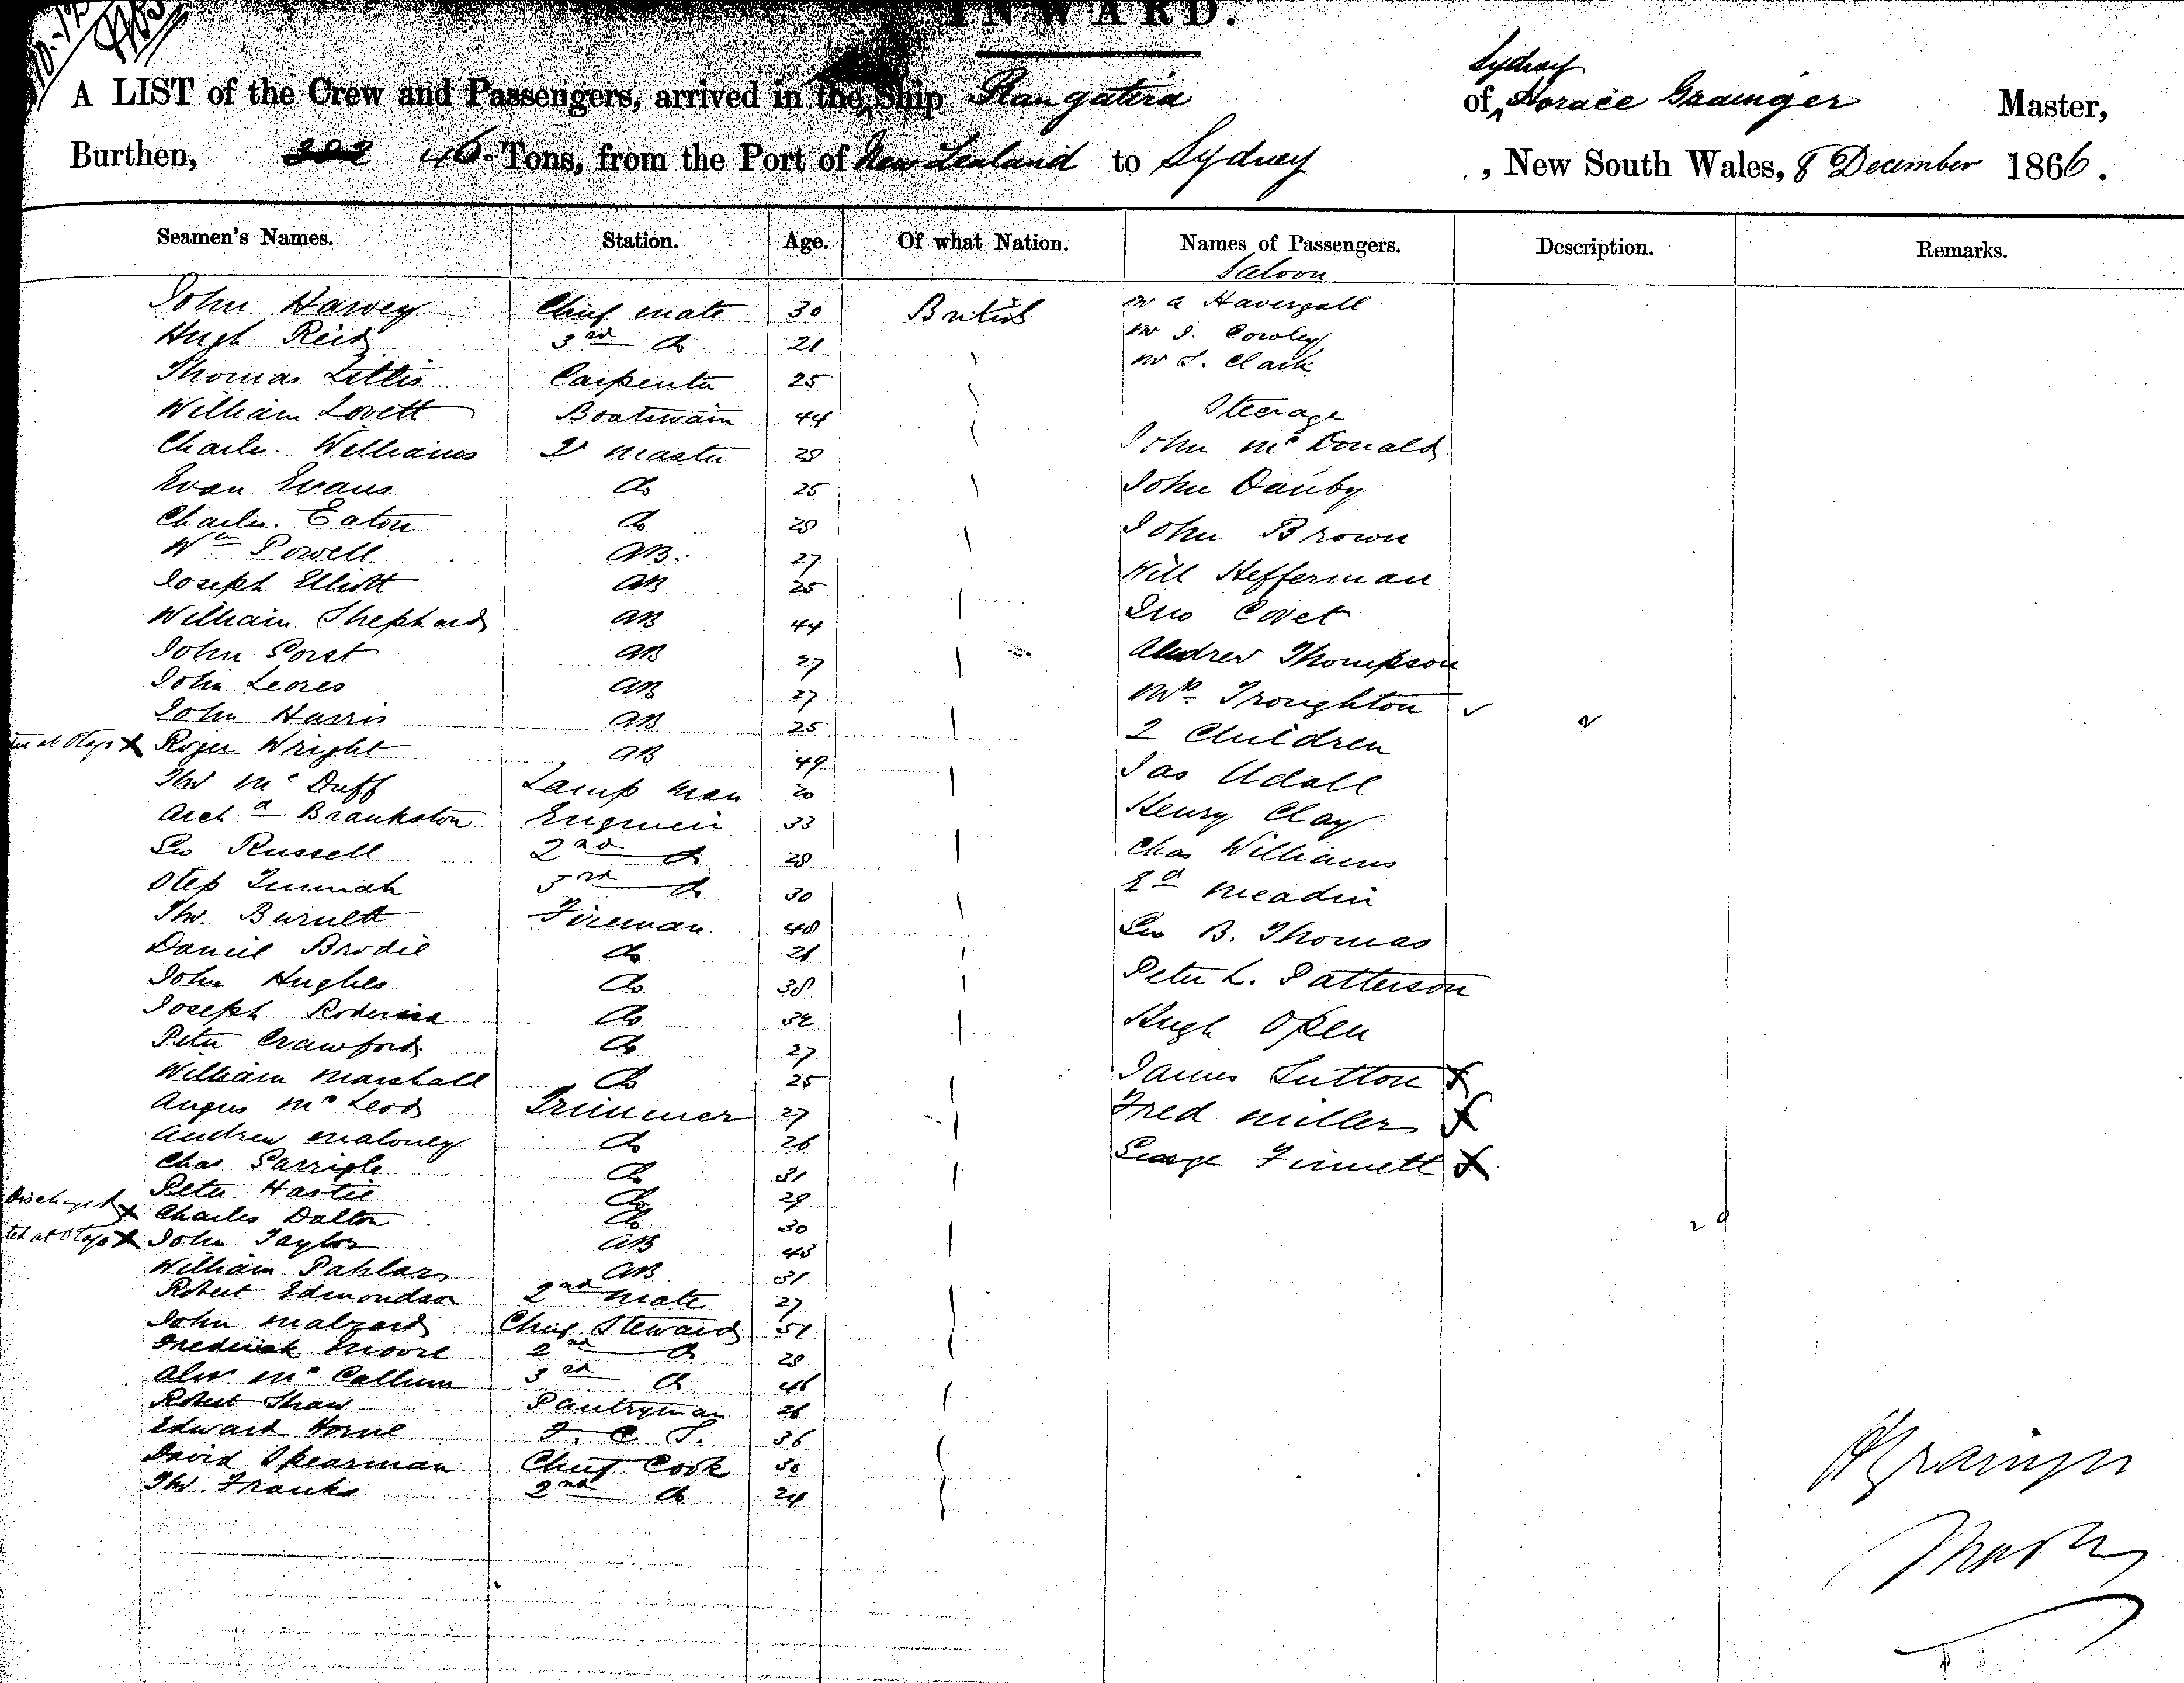 INWARD.
Sydney
A LIST of the Crew and Passengers, arrived in the Ship Rangatira of Horace Grainger Master,
Burthen, 46 Tons, from the Port of New Zealand to Sydney, New South Wales, 8 December 1866.
Seamen's Names. Station. Age. Of what Nation. Names of Passengers. Description. Remarks.
Saloon
John Harvey Chief mate 30 British Mr A Havergall
Hugh Reid 3rd do 21 Mr J. Cowley
Thomas Littis Carpenter 25 Mr S. Clark
William Lovett Boatswain 44 Steerage
Charles Williams 2r master 28 John McDonald
Evan Evans do 25 John Danby
Charles Eaton do 28 John Brown
Wm Powell AB. 27 Will Hefferman
Joseph Elliott AB 25 Jno Covet
William Shephard AB 44 Andrew Thompson
John Porst AB 27 Mrs Troughton
John Leores AB 27 2 Children
John Harris AB 25 Jas Udall
Roger Wright AB 49 Henry Clay
Thos McDuff Lamp man 20 Chas Williams
Archd Brankston Engineer 33 Ed Meadin
Geo Russell 2nd do 28 Geo B. Thomas
Step 3rd do 30 Peter L. Patterson
Thos Burnett Fireman 48 Hugh Open
Daniel Brodie do 26 James Sutton X
John Hughes do 38 Fred Miller X
Joseph Roderick do 32 George Finnett X
Peter Crawford do 27
William Marshall do 25
Angus McLeod Trimmer 27
Andrew Maloney do 26
Chas do 31
Peter Hastie do 29
Discharged X Charles Dalton do 30
X John Taylor AB 43
William Pahlars AB 31
Robert Edmondson 2nd mate 27
John Malzard Chief Steward 51
Frederick Moore 2nd do 28
Alexr McCallum 3rd do 46
Robert Shaw Pantryman 26
Edward Horne F. C. S. 36
David Spearman Chief Cook 30
Thos Franks 2nd do 24
H Grainger
Master